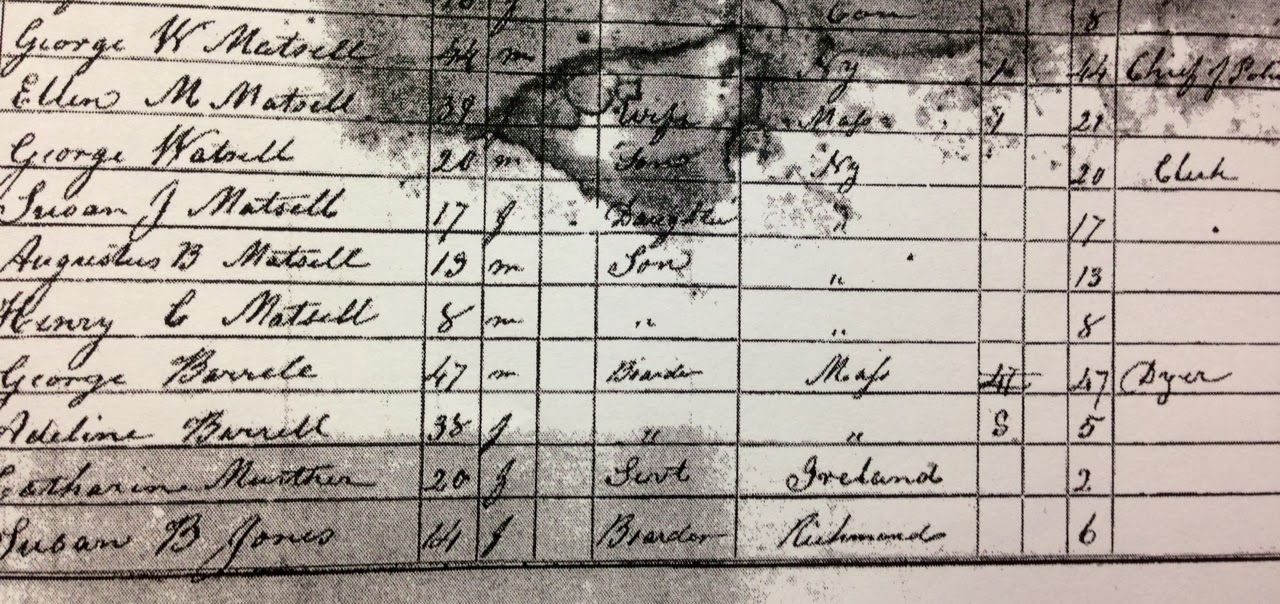 Con 8
George W Matsell 44 m Ny 1 44 Chief of Poli
Ellen M Matsell 39 f Wife Mass 21
George Watsell 20 m Sons Ny 20 Clerk
Susan J Matsell 17 f Daughter " 17
Augustus B Matsell 13 m Son " 13
Henry C Matsell 8 m " " 8
George Barrele 47 m Boarder Mass 47 Dyer
Adeline Barrell 38 f " " S 5
Catharine Murther 20 f Servt Ireland 2
Susan B Jones 14 f Boarder Richmond 6